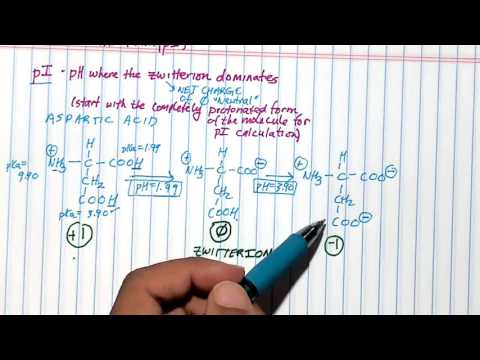 pI - pH where the zwitterion dominates
NET CHARGE
of Ø "Neutral"
(start with the completely protonated form
of the molecule for
pI calculation)
ASPARTIC ACID
H
pKa = 1.99
pKa = 9.90
⊕NH₃-C-COOH
CH₂
COOH
pKa = 3.90
+1
pH=1.99
H
⊕NH₃-C-COO⊖
CH₂
COOH
Ø
ZWITTERION
pH=3.90
H
⊕NH₃-C-COO⊖
CH₂
C
COO⊖
-1